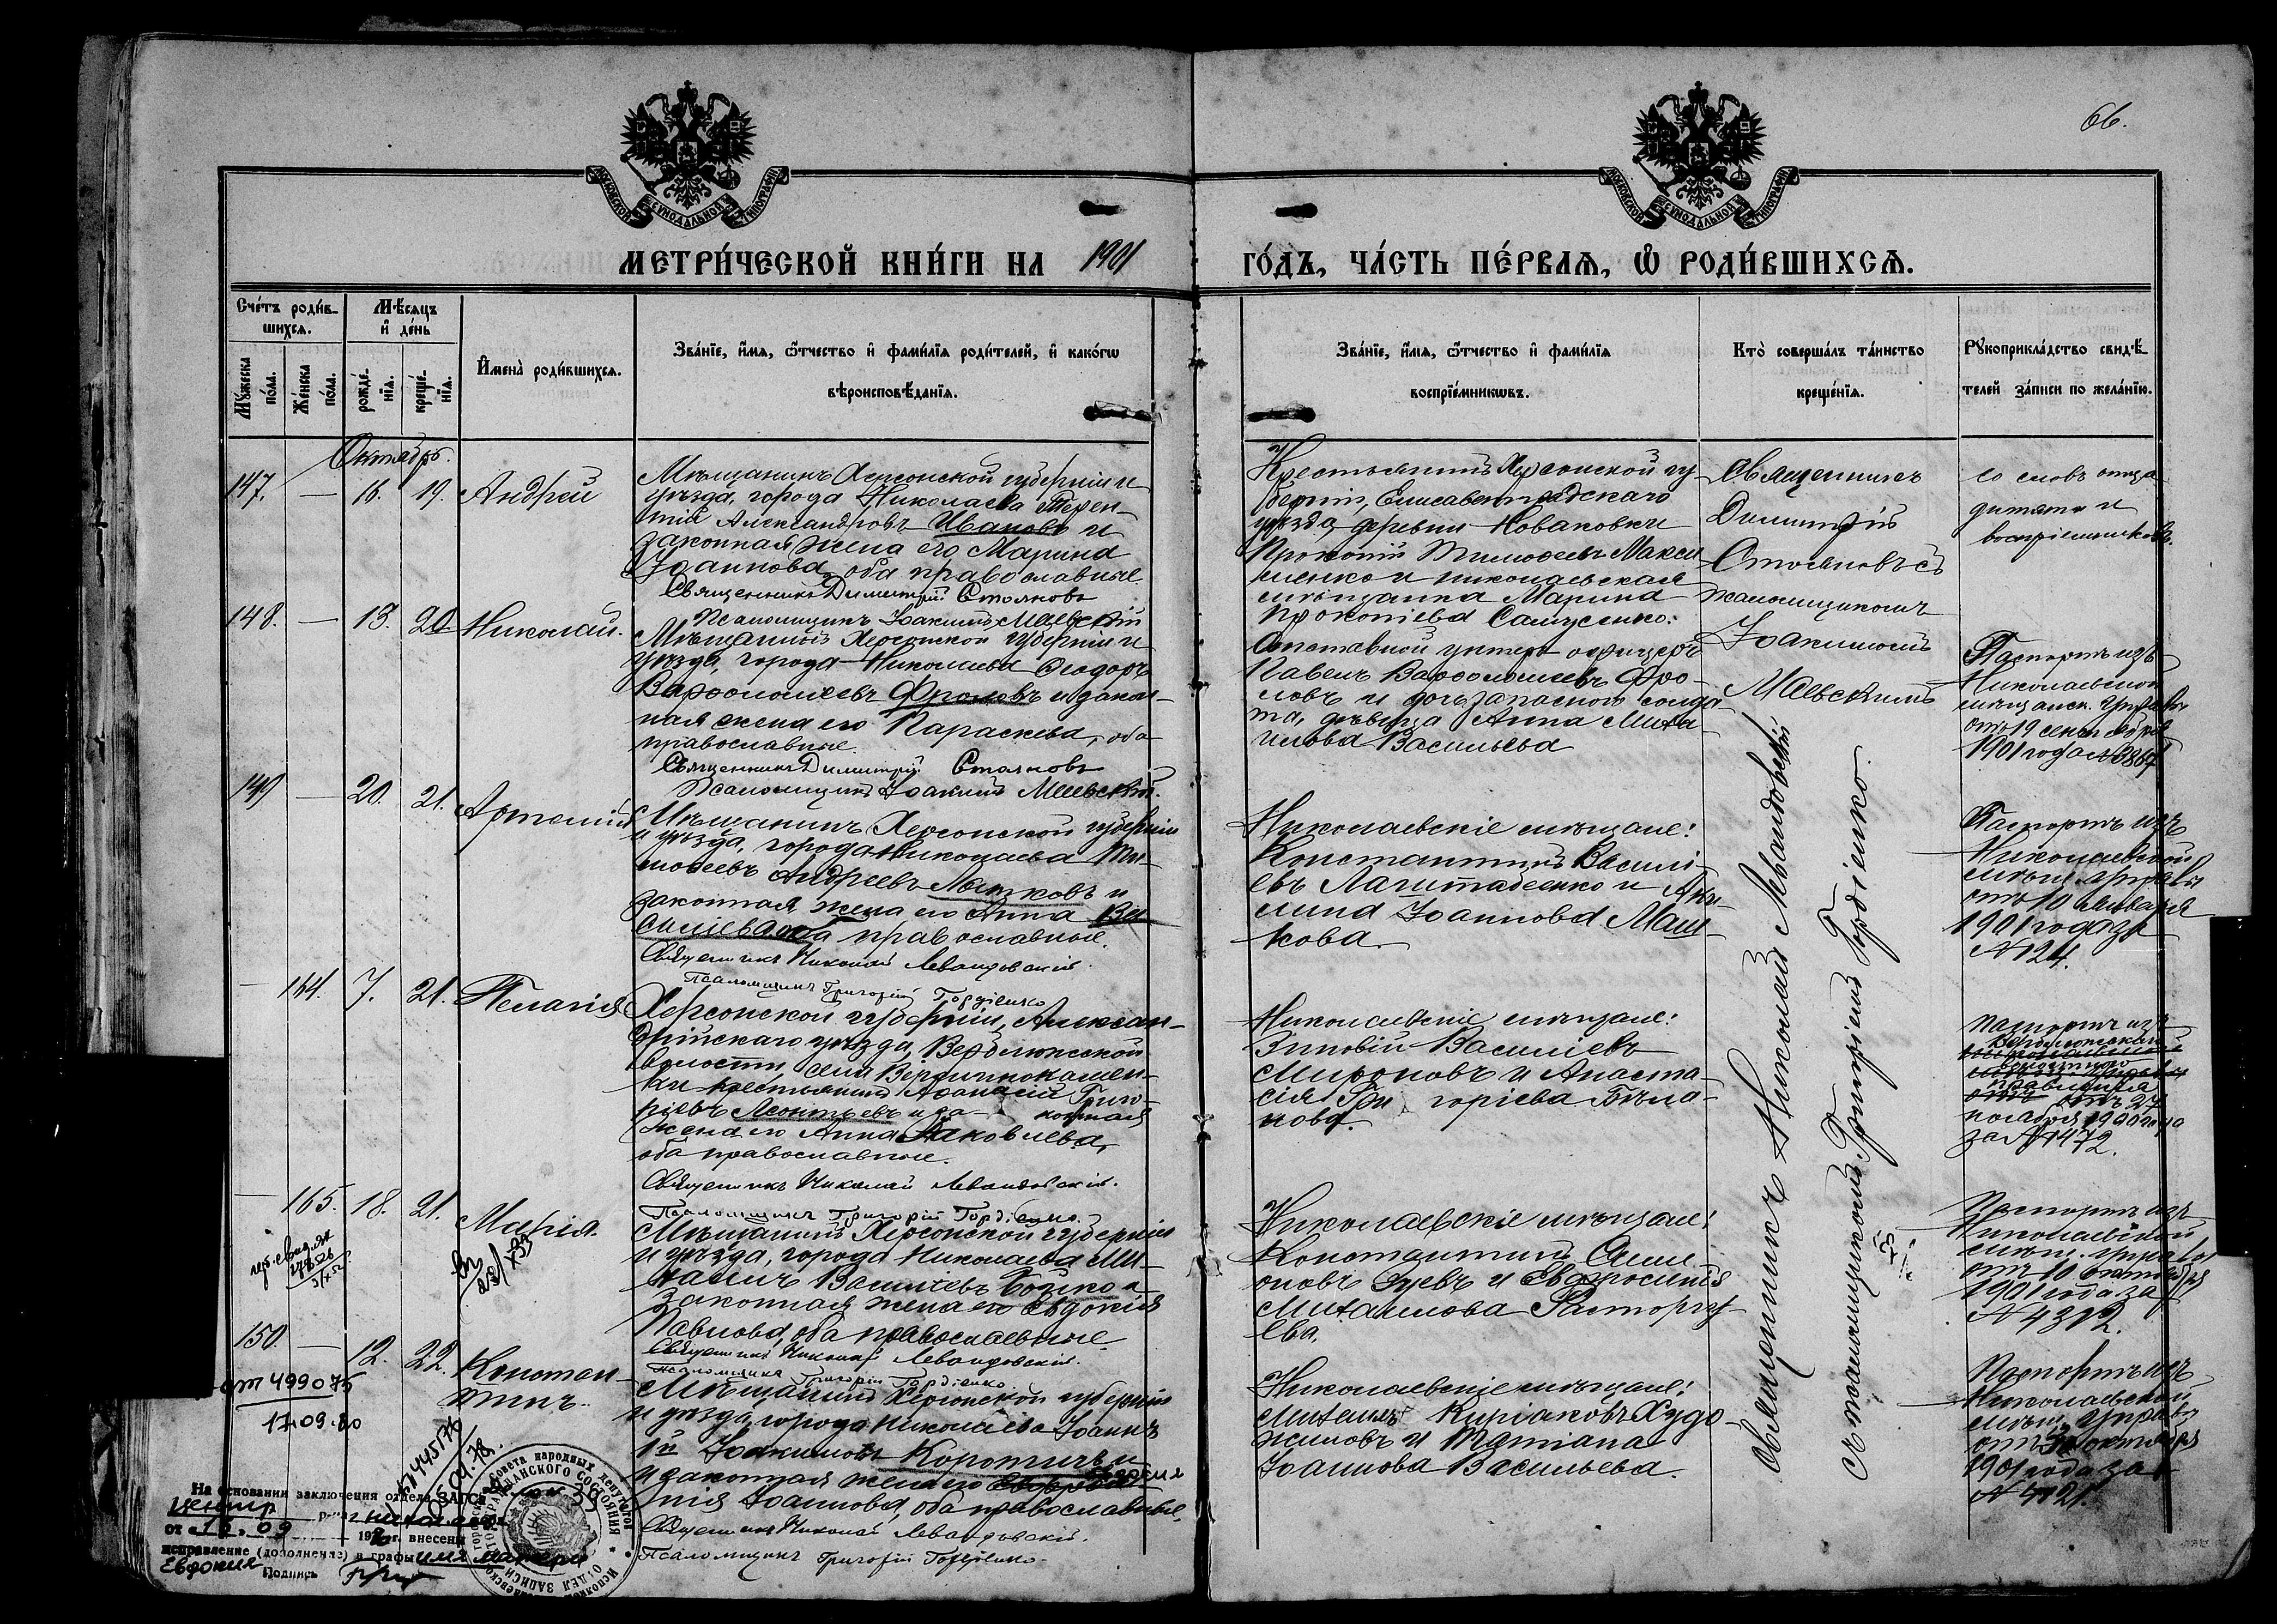 66.
МОСКОВСКОЙ СѴНОДАЛЬНОЙ ТИПОГРАФІИ
МОСКОВСКОЙ СѴНОДАЛЬНОЙ ТИПОГРАФІИ
МЕТРИ́ЧЕСКОЙ КНИ́ГИ НА 1901 ГО́ДЪ, ЧА́СТЬ ПЕ́РВАѦ, Ѡ РОДИ́ВШИХСѦ.
Сче́тъ роди́в-
шихсѧ.
Мꙋжеска по́ла.
Же́нска по́ла.
Мѣ́сѧцъ
и҆ де́нь
рожде́-
нїѧ.
креще́-
нїѧ.
И҆мена̀ роди́вшихсѧ.
Зва́нїе, и҆́мѧ, ѻ҆́тчество и҆ фами́лїѧ роди́телей, и҆ како́гѡ
вѣроисповѣ́данїѧ.
Зва́нїе, и҆́мѧ, ѻ҆́тчество и҆ фами́лїѧ
воспрїе́мникѡвъ.
Кто̀ соверша́лъ та́инство
креще́нїѧ.
Рꙋкоприкла́дство свидѣ́-
телей за́писи по жела́нїю.
Октябрь.
147. — 16. 19. Андрей
Мѣщанинъ Херсонской губерніи и
уѣзда, города Николаева Терен-
тій Александровъ Ивановъ и
законная жена его Марина
Іоаннова, оба православные.
Священникъ Димитрій Стояновъ
Псаломщикъ Іоакимъ Маевскій
Крестьянинъ Херсонской гу-
берніи, Елисаветградскаго
уѣзда, деревни Новаковки
Прокопій Тимофеевъ Макси-
менко и николаевская
мѣщанка Марина
Прокопіева Самусенко.
Священникъ
Димитрій
Стояновъ съ
псаломщикомъ
Іоакимомъ
Маевскимъ
со словъ отца
дитяти и
воспріемниковъ.
148. — 13. 20. Николай.
Мѣщанинъ Херсонской губерніи и
уѣзда, города Николаева Ѳеодоръ
Варфоломеевъ Фроловъ и закон-
ная жена его Параскева, оба
православные.
Священникъ Димитрій Стояновъ
Псаломщикъ Іоакимъ Маевскій.
Отставной унтеръ офицеръ
Павелъ Варфоломеевъ Фро-
ловъ и дочь запаснаго солда-
та, дѣвица Анна Миха-
илова Васильева
Паспортъ изъ
Николаевской
мѣщанск. Управы
отъ 19 сентября
1901 года № 3867
149 — 20. 21. Артемій
Мѣщанинъ Херсонской губерніи
и уѣзда, города Николаева Ти-
мофеевъ Андреевъ
законная жена его Анна Ва-
силіева оба православные.
Священникъ Николай Левандовскій.
Псаломщикъ Григорій Гордіенко
Николаевскіе мѣщане:
Константинъ Василі-
евъ и Аку-
лина Іоаннова Маш-
кова.
Священникъ Николай Левандовскій
съ псаломщикомъ Григоріемъ Гордіенко.
Паспортъ изъ
Николаевской
мѣщ. Управы
отъ 10 января
1901 года за
№ 124.
— 164. 7. 21. Пелагія
Херсонской губерніи, Алексан-
дрійскаго уѣзда, Верблюжской
волости, села
крестьянинъ Афанасій Григо-
ріевъ Леонтьевъ и законная
жена его Анна Яковлева,
оба православные.
Священникъ Николай Левандовскій.
Псаломщикъ Григорій Гордіенко.
Николаевскіе мѣщане:
Зиновій Василіевъ
Мироновъ и Анаста-
сія Григоріева Бѣла-
кова.
Паспортъ изъ
Верблюжскаго
волостного
правленія
отъ 27
ноября 1900 года
за № 1472.
— 165. 18. 21. Марія.
Мѣщанинъ Херсонской губерніи
и уѣзда, города Николаева Ми-
хаилъ Василіевъ Бойко и
законная жена его Евдокія
Павлова, оба православные.
Священникъ Николай Левандовскій.
Псаломщикъ Григорій Гордіенко.
Николаевскіе мѣщане:
Константинъ Симе-
оновъ Зуевъ и Евфросинія
Михаилова Расторгу-
ева.
Паспортъ изъ
Николаевской
мѣщ. Управы
отъ 10 октября
1901 года за
№ 4312.
150. — 12. 22. Констан-
тинъ.
Мѣщанинъ Херсонской губерніи
и уѣзда, города Николаева Іоаннъ
Іоакимовъ Коротичъ и
законная жена его
Іоаннова, оба православные.
Священникъ Николай Левандовскій.
Псаломщикъ Григорій Гордіенко.
Николаевскіе мѣщане:
Михаилъ Киріаковъ Худо-
жиловъ и Татіана
Іоаннова Васильева.
Паспортъ изъ
Николаевской
мѣщ. Управы
октября
1901 года за
№ 4121.
499075
17.09.80
На основании заключения отдела ЗАГС
центр р-на г. Николаева
от 15.09 внесени
исправление (дополнение) в графы имя матери
Евдокия
Подпись